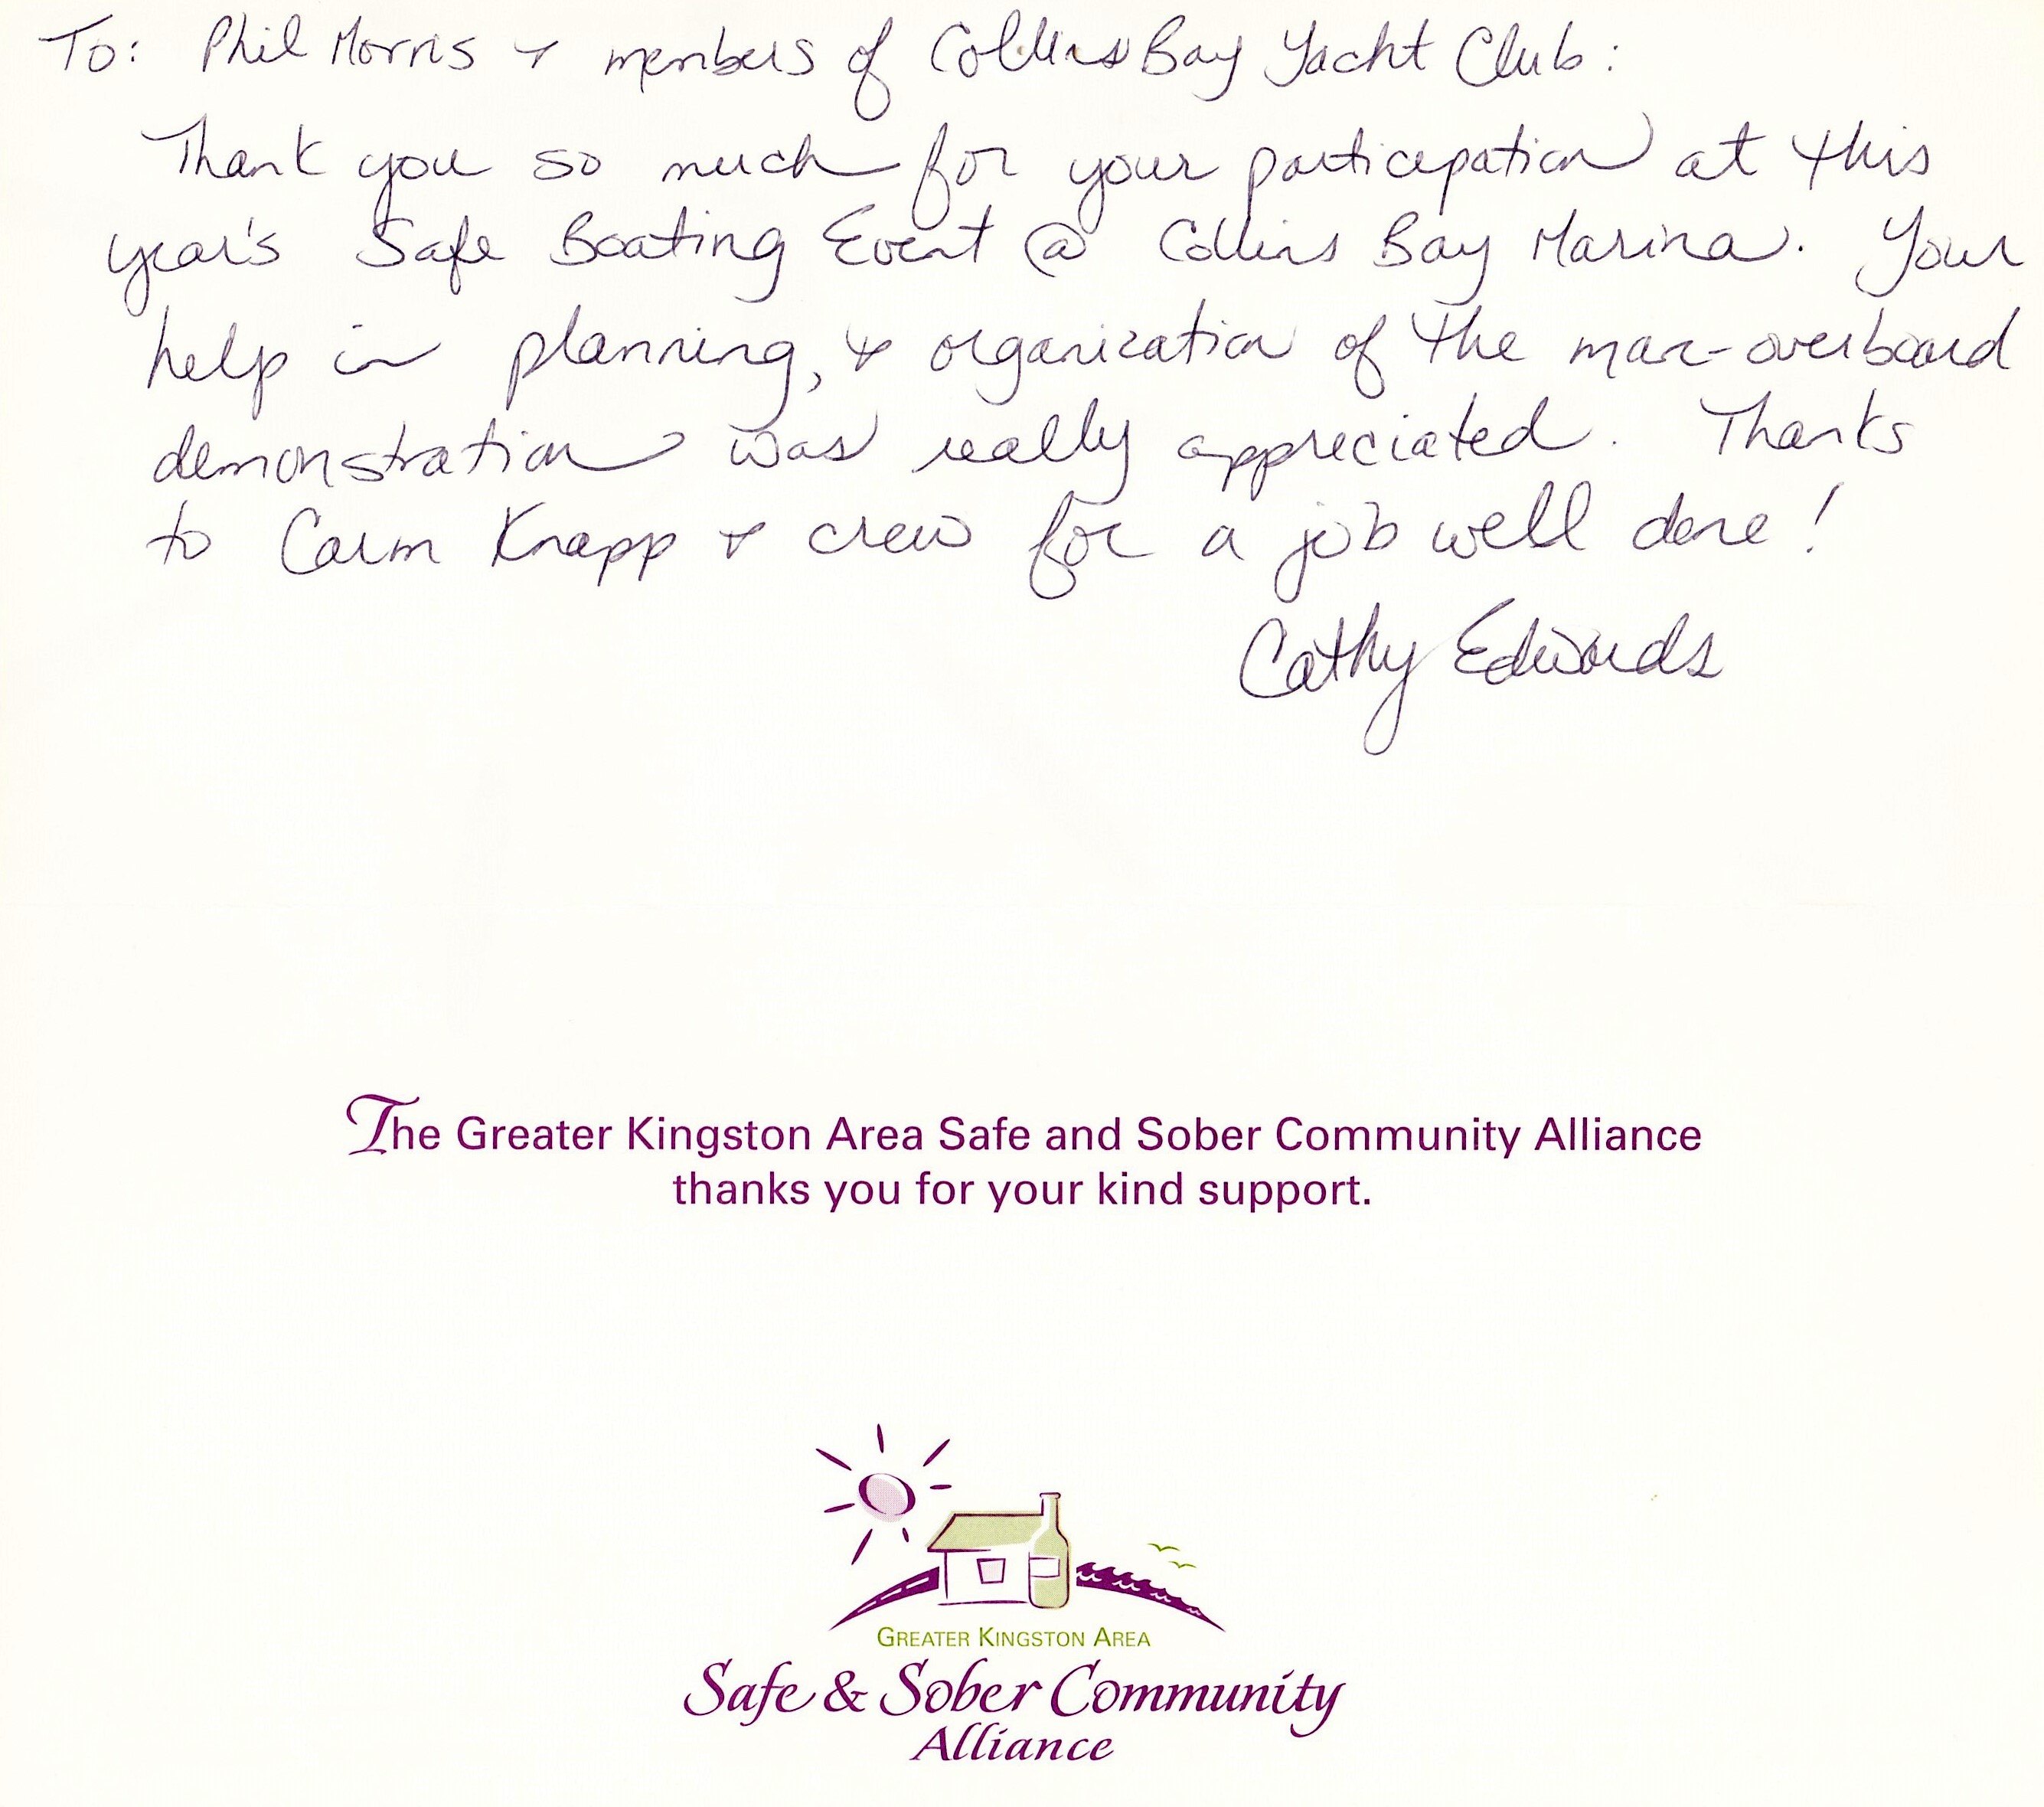 To: Phil Morris & members of Collins Bay Yacht Club:
Thank you so much for your participation at this
year's Safe Boating Event @ Collins Bay Marina. Your
help in planning, & organization of the man-overboard
demonstration was really appreciated. Thanks
to Carm Knapp & crew for a job well done!
Cathy Edwards
The Greater Kingston Area Safe and Sober Community Alliance
thanks you for your kind support.
GREATER KINGSTON AREA
Safe & Sober Community
Alliance